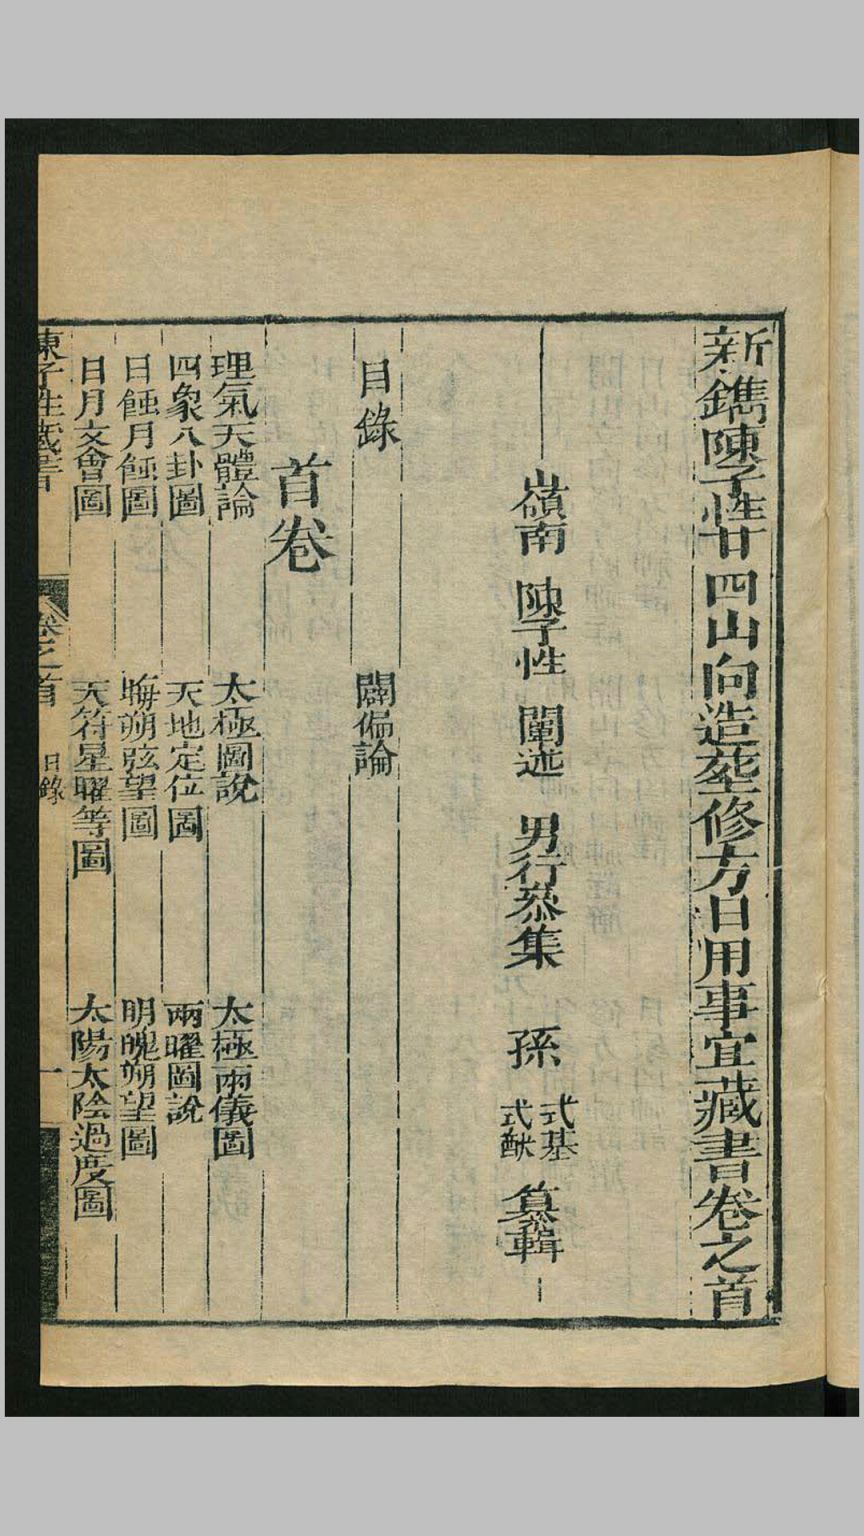 新鐫陳子性廿四山向造塟修方日用事宜藏書卷之首
嶺南 陳子性 闡述 男行㳟集 孫 式基 式猷 纂輯
目錄 闢偏論
首卷
理氣天體論 太極圖說 太極兩儀圖
四象八卦圖 天地定位圖 兩曜圖說
日蝕月蝕圖 晦朔弦望圖 明魄朔望圖
日月交會圖 天符星曜等圖 太陽太陰過度圖
陳子性藏書 卷之首 目錄 一